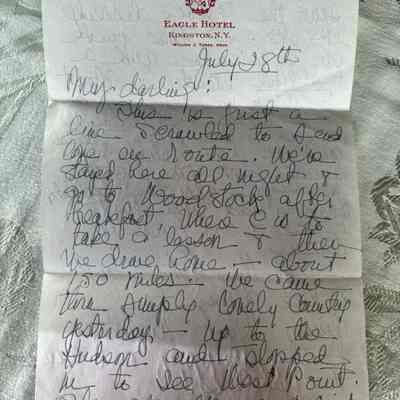 EAGLE HOTEL
KINGSTON, N.Y.
July 28th
My darling:
This is just a
line scrawled to send
love en route. We've
stayed here all night &
go to Woodstock after
breakfast, where C is to
take a lesson & then
we drive home — about
150 miles. We came
thru simply lovely country
yesterday — up to the
Hudson and stopped
in to see West Point.